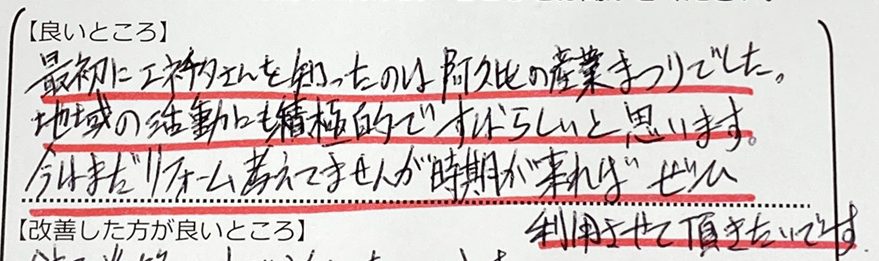 【良いところ】
最初にエネチタさんを知ったのは阿久比の産業まつりでした。
地域の活動にも積極的ですばらしいと思います。
今はまだリフォーム考えてませんが時期が来ればぜひ
利用させて頂きたいです。
【改善した方が良いところ】